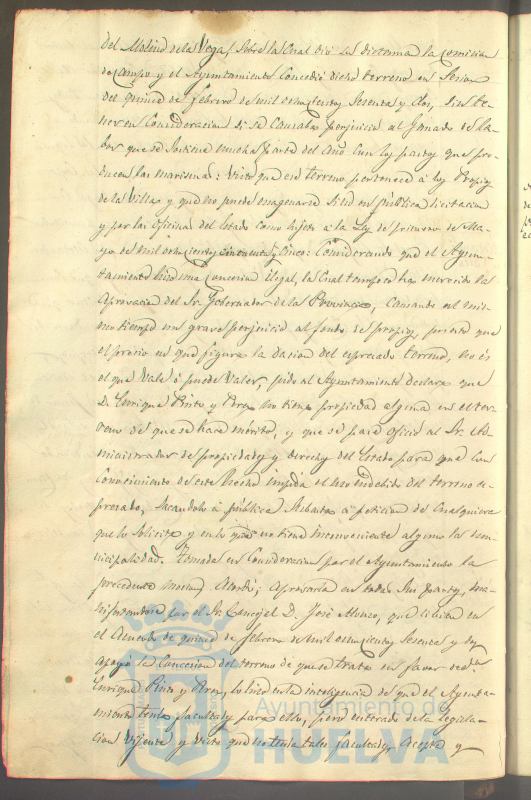 del Molino de la Vega, sobre la Cual dió su dictamen la Comision
de Campo y el Ayuntamiento Concedió dicho terreno en Sesion
del quince de febrero de mil ochocientos Sesenta y dos, sin te-
ner en Consideracion si se Causaba perjuicio al Ganado de la-
bor que se sostiene mucha parte del año Con los pastos que pro-
ducen las marismas: Visto que ese terreno pertenece a los Propios
de la Villa y que no puede enagenarse sino en pública licitacion
y por las oficinas del Estado como sujeto a la Ley de primero de Ma-
yo de mil ochocientos cincuenta y Cinco: Considerando que el Ayun-
tamiento hizo una Concesion ilegal, la Cual tampoco ha merecido la
aprovacion del Sr. Gobernador de la Provincia, Causando al mis-
mo tiempo un grave perjuicio al fondo de propios, puesto que
el precio en que figura la dacion del espresado terreno, no és
el que Vale ó puede Valer, pido al Ayuntamiento declare que
D. Enrique Pinto y Perez no tiene propiedad alguna en el ter-
reno de que se hace mérito, y que se pase oficio al Sr. Ad-
ministrador de propiedades y derechos del Estado para que con
Conocimiento de este hecho impida el uso indebido del terreno es-
presado, Sacandolo á pública Subasta a peticion de Cualquiera
que lo solicite y en lo que no tiene inconveniente alguno la mu-
nicipalidad. Tomada en Consideracion por el Ayuntamiento la
precedente mocion, Acordó; Aprovarla en todas sus partes, ma-
nifestandose por el Sr. Concejal D. José Alonso, que si bien en
el Acuerdo de quince de febrero de mil ochocientos Sesenta y dos
apoyó la Concesion del terreno de que se trata en favor de Don
Enrique Pinto y Perez, lo hizo en la inteligencia de que el Ayunta-
miento tenia facultades para ello, pero enterado de la legisla-
cion Vijente, y Visto que no tenia tales facultades, acepta y
Ayuntamiento de
HUELVA